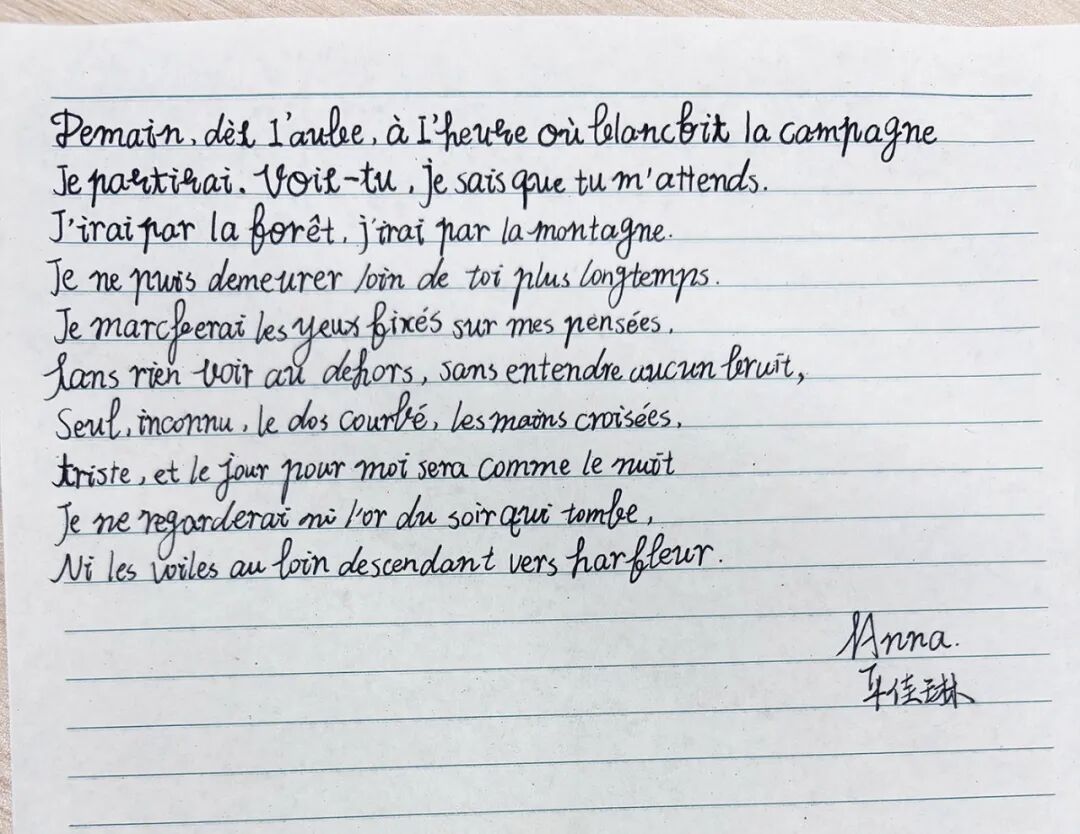 Demain, dès l'aube, à l'heure où blanchit la campagne
Je partirai. Vois-tu, je sais que tu m'attends.
J'irai par la forêt, j'irai par la montagne.
Je ne puis demeurer loin de toi plus longtemps.
Je marcherai les yeux fixés sur mes pensées,
Sans rien voir au dehors, sans entendre aucun bruit,
Seul, inconnu, le dos courbé, les mains croisées,
triste, et le jour pour moi sera comme le nuit
Je ne regarderai ni l'or du soir qui tombe,
Ni les voiles au loin descendant vers harfleur.
Anna.
佳琳